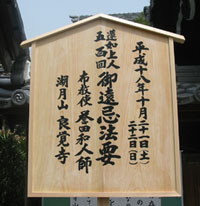 平成十八年十月二十一日(土)
二十二日(日)
蓮如上人
五百回
御遠忌法要
布教使 誉田和人師
湖月山 良覚寺